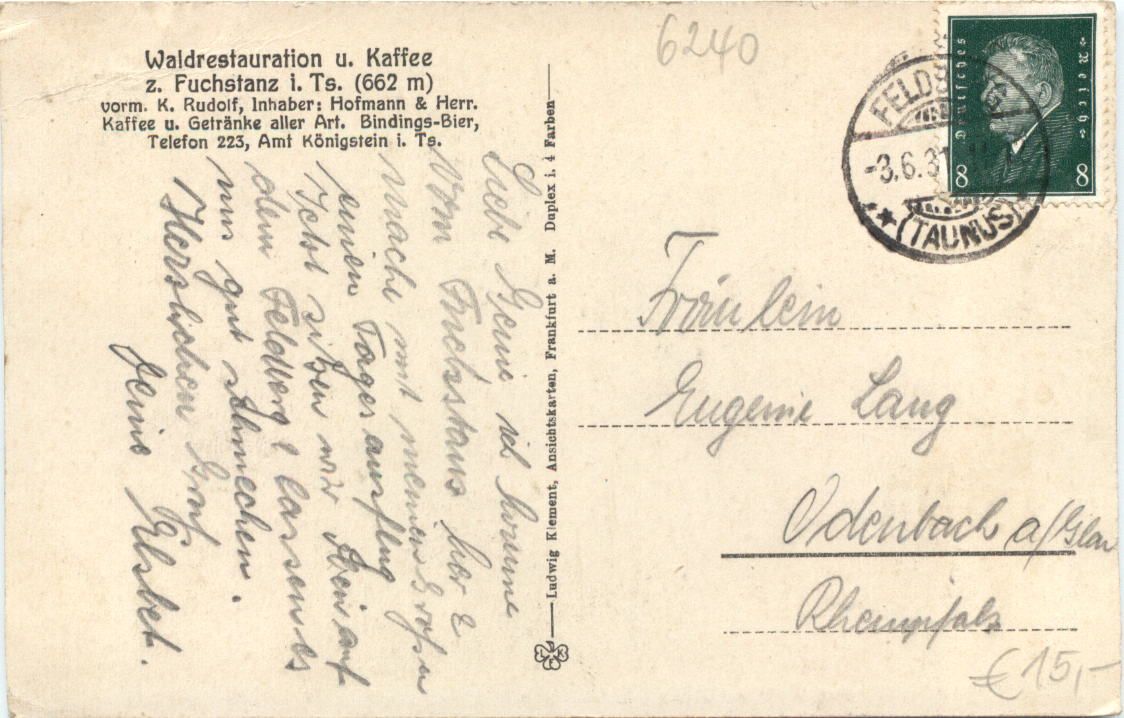 Waldrestauration u. Kaffee
z. Fuchstanz i. Ts. (662 m)
vorm. K. Rudolf, Inhaber: Hofmann & Herr.
Kaffee u. Getränke aller Art. Bindings-Bier,
Telefon 223, Amt Königstein i. Ts.
Liebe Genie ich komme
vom Fuchstanz her &
mache mit meinen Großen
einen Tagesausflug
Jetzt sitzen wir auf
dem Feldberg & lassen es
uns gut schmecken.
Herzlichen Gruß
Deine Elsbet.
Ludwig Klement, Ansichtskarten, Frankfurt a. M. Duplex i. 4 Farben
L K F
6240
Deutsches Reich
8 8
FELDBERG
-3.6.31
(TAUNUS)
Fräulein
Eugenie Lang
Odenbach a/Glan
Rheinpfalz
€ 15,-